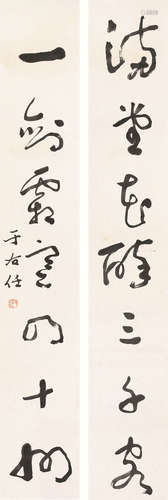 满堂花醉三千客
一剑霜寒四十州
于右任